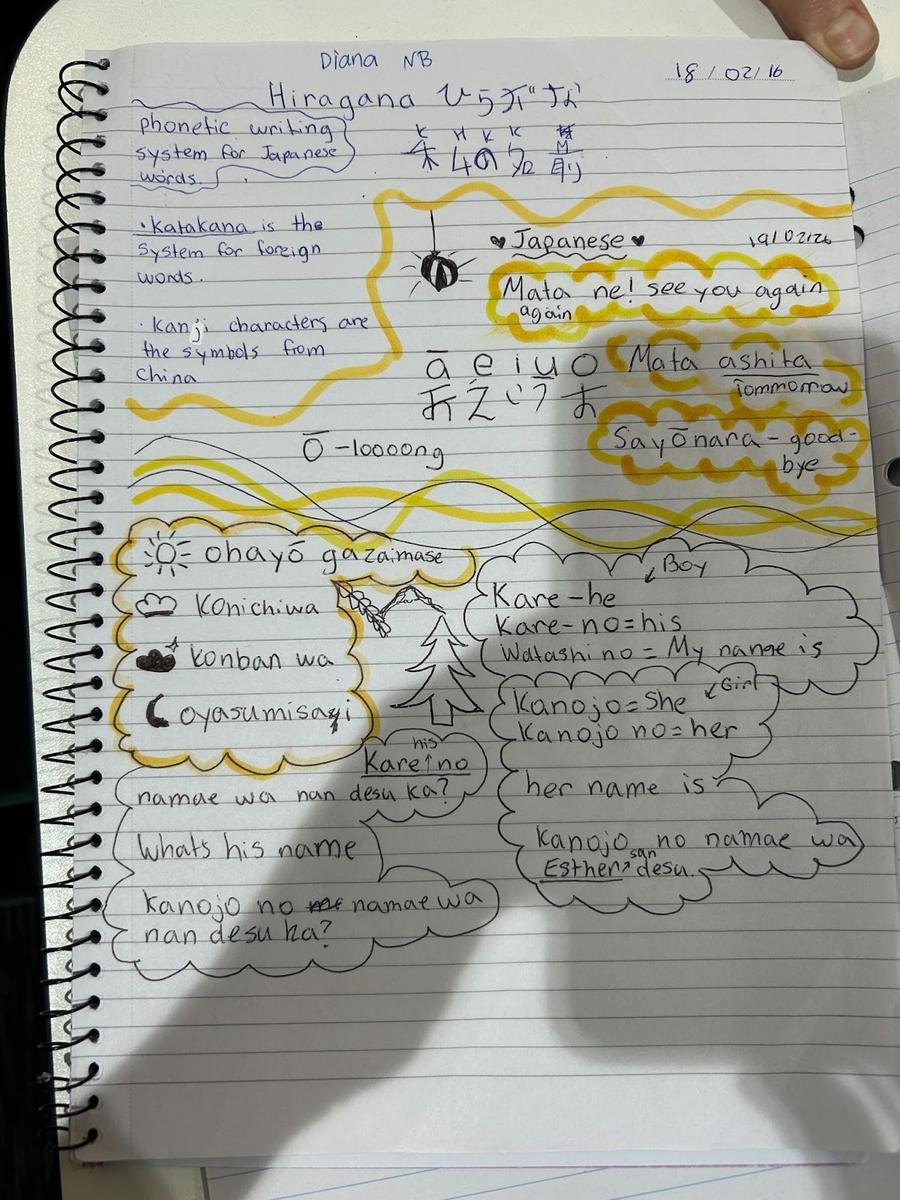 Diana NB
18/02/16
Hiragana ひらがな
phonetic writing
system for Japanese
words.
K H K K
M
朱
•Katakana is the
system for foreign
words.
•Kanji characters are
the symbols from
China
♥ Japanese ♥
19/02/26
Mata ne! see you again
again
ā e i u o
あ え い う お
Mata ashita
Tommorrow
Ō -loooong
Sayōnara - good-
bye
ohayō gazaimase
Konichiwa
Konban wa
oyasumisayi
Boy
Kare - he
Kare-no=his
Watashi no = My name is
Girl
Kanojo = She
Kanojo no = her
her name is
Kanojo no namae wa
san
Esther desu.
his
Kare no
namae wa nan desu ka?
Whats his name
Kanojo no me namae wa
nan desu ka?